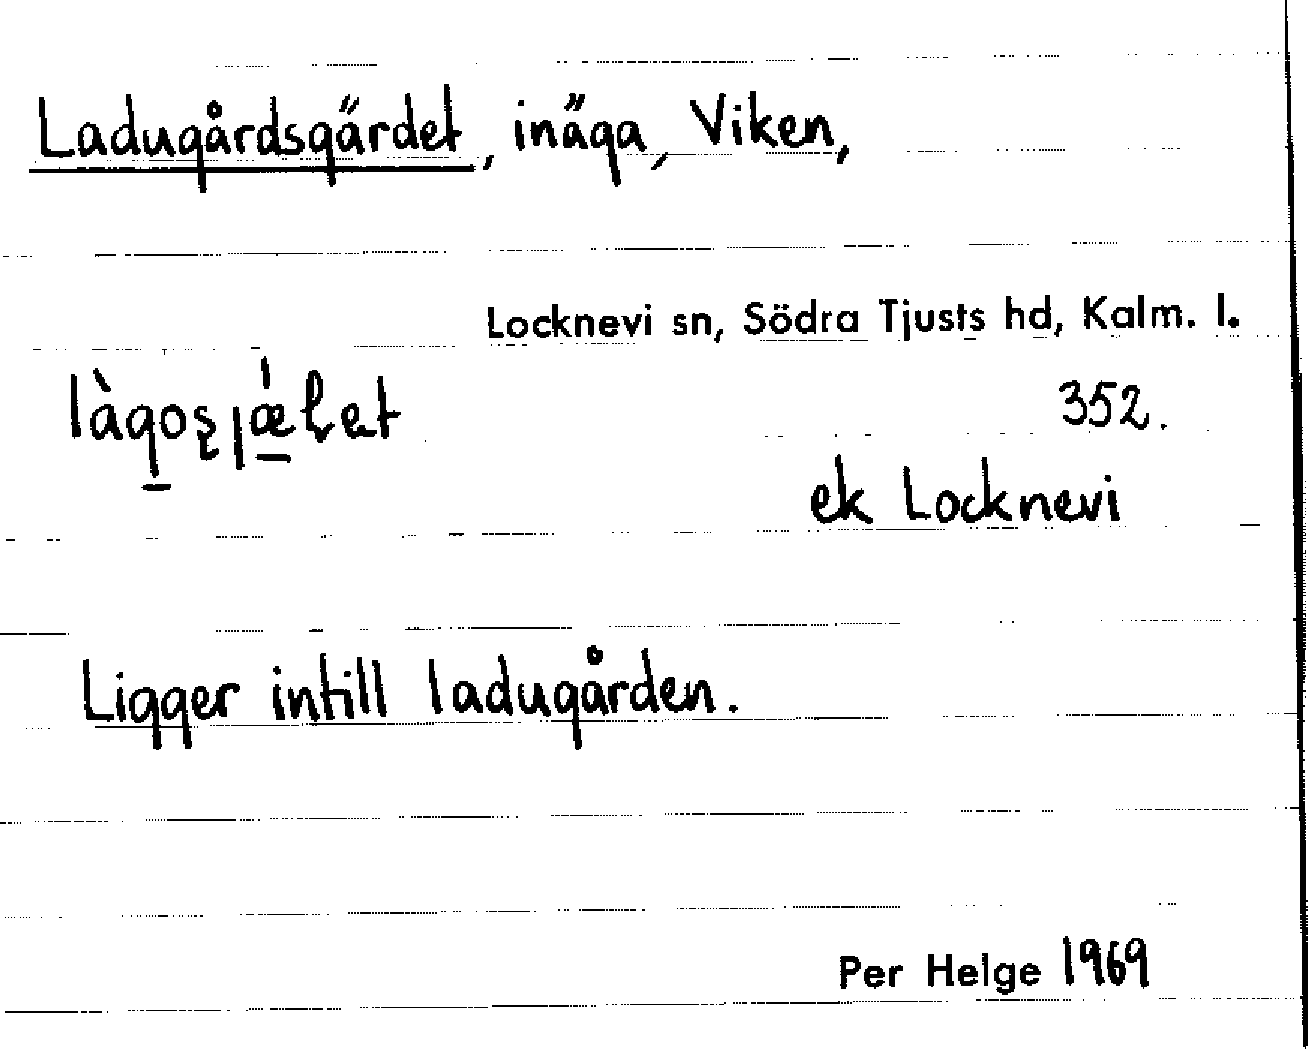 Ladugårdsgärdet, inäga, Viken,
Locknevi sn, Södra Tjusts hd, Kalm. l.
352.
ek Locknevi
Ligger intill ladugården.
Per Helge 1969